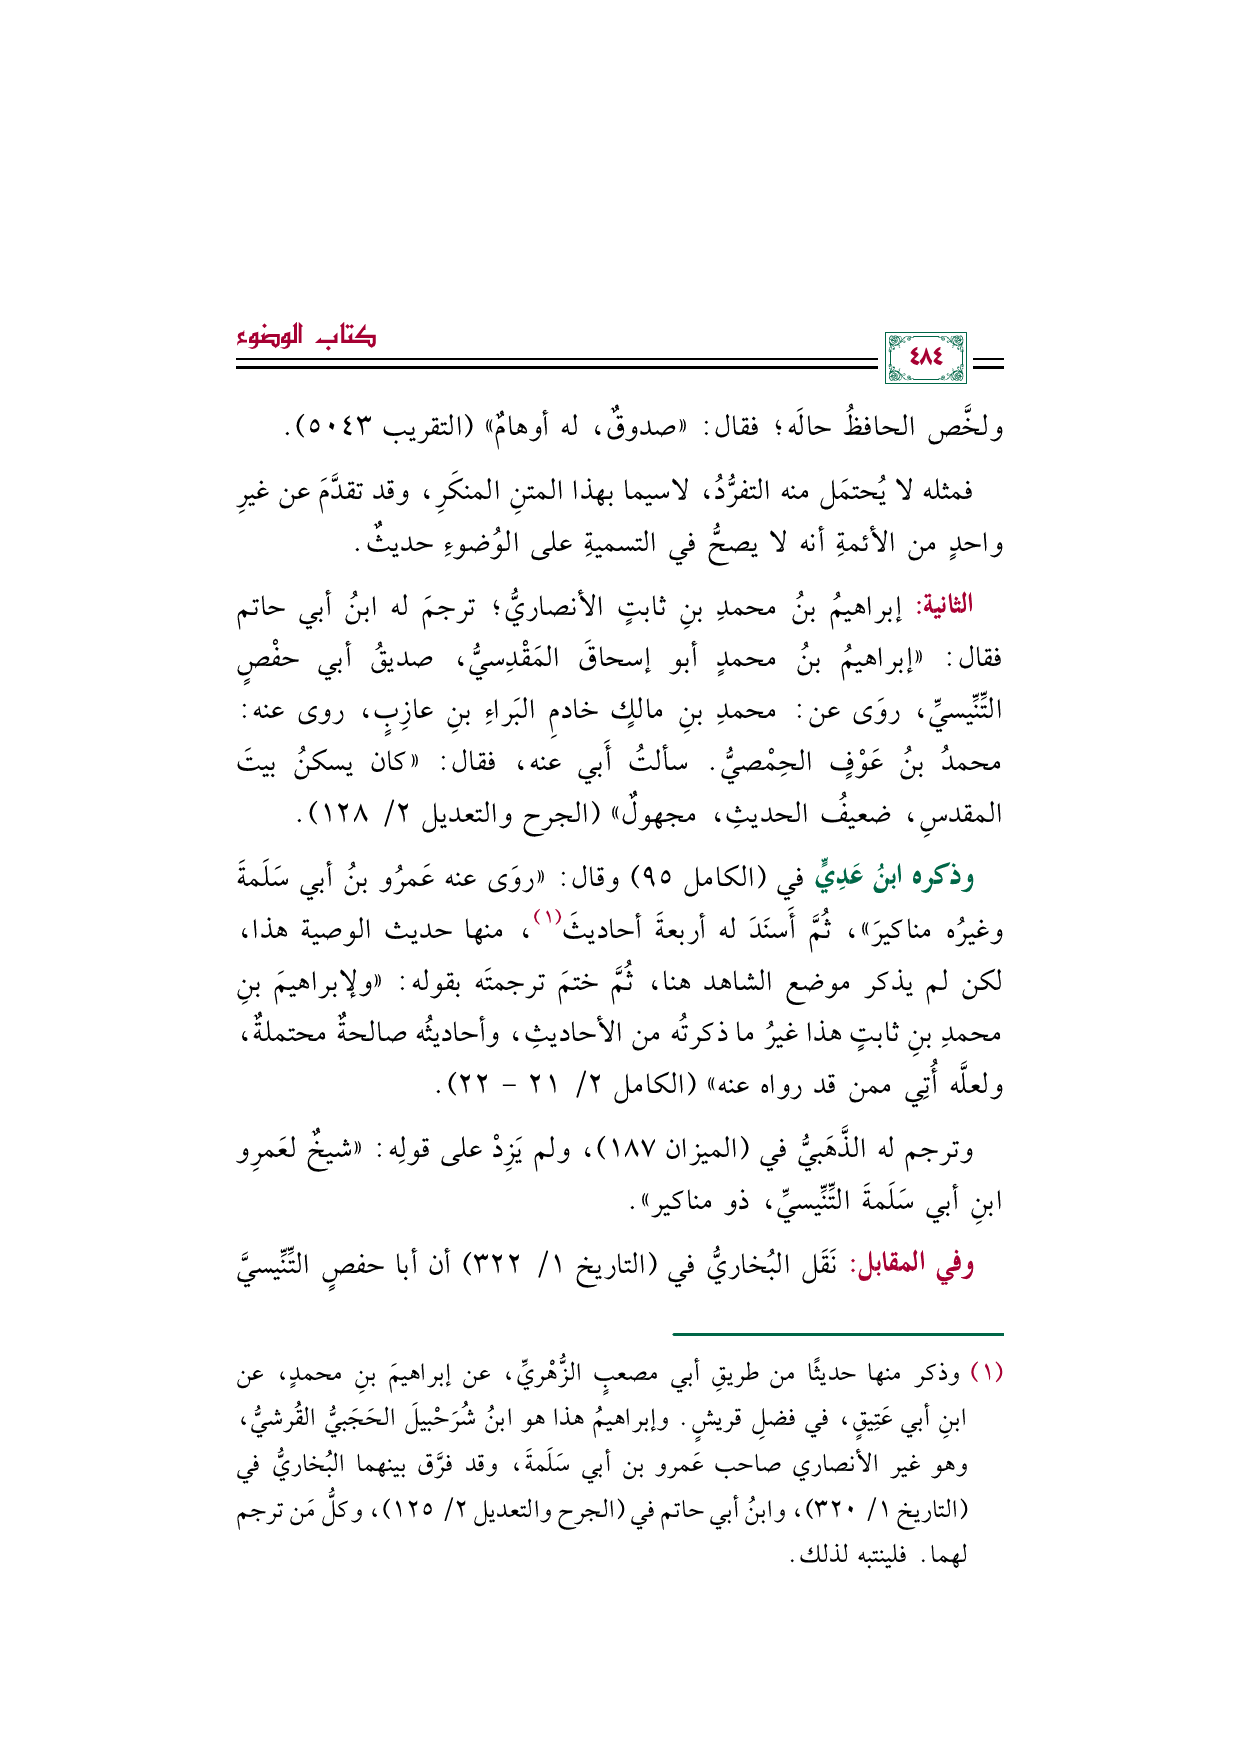 كتاب الوضوء
٤٨٤
ولخَّص الحافظُ حالَه؛ فقال: «صدوقٌ، له أوهامٌ» (التقريب ٥٠٤٣).
فمثله لا يُحتمَل منه التفرُّدُ، لاسيما بهذا المتنِ المنكَرِ، وقد تقدَّمَ عن غيرِ
واحدٍ من الأئمةِ أنه لا يصحُّ في التسميةِ على الوُضوءِ حديثٌ.
الثانية: إبراهيمُ بنُ محمدِ بنِ ثابتٍ الأنصاريُّ؛ ترجمَ له ابنُ أبي حاتم
فقال: «إبراهيمُ بنُ محمدٍ أبو إسحاقَ المَقْدِسيُّ، صديقُ أبي حفْصٍ
التِّنِّيسيِّ، روَى عن: محمدِ بنِ مالكٍ خادمِ البَراءِ بنِ عازِبٍ، روى عنه:
محمدُ بنُ عَوْفٍ الحِمْصيُّ. سألتُ أَبي عنه، فقال: «كان يسكنُ بيتَ
المقدسِ، ضعيفُ الحديثِ، مجهولٌ» (الجرح والتعديل ٢/ ١٢٨).
وذكره ابنُ عَدِيٍّ في (الكامل ٩٥) وقال: «روَى عنه عَمرُو بنُ أبي سَلَمةَ
وغيرُه مناكيرَ»، ثُمَّ أَسنَدَ له أربعةَ أحاديثَ(١)، منها حديث الوصية هذا،
لكن لم يذكر موضع الشاهد هنا، ثُمَّ ختمَ ترجمتَه بقوله: «ولإبراهيمَ بنِ
محمدِ بنِ ثابتٍ هذا غيرُ ما ذكرتُه من الأحاديثِ، وأحاديثُه صالحةٌ محتملةٌ،
ولعلَّه أُتِي ممن قد رواه عنه» (الكامل ٢/ ٢١ – ٢٢).
وترجم له الذَّهَبيُّ في (الميزان ١٨٧)، ولم يَزِدْ على قولِه: «شيخٌ لعَمرِو
ابنِ أبي سَلَمةَ التِّنِّيسيِّ، ذو مناكير».
وفي المقابل: نَقَل البُخاريُّ في (التاريخ ١/ ٣٢٢) أن أبا حفصٍ التِّنِّيسيَّ
(١) وذكر منها حديثًا من طريقِ أبي مصعبٍ الزُّهْريِّ، عن إبراهيمَ بنِ محمدٍ، عن
ابنِ أبي عَتِيقٍ، في فضلِ قريشٍ. وإبراهيمُ هذا هو ابنُ شُرَحْبيلَ الحَجَبيُّ القُرشيُّ،
وهو غير الأنصاري صاحب عَمرو بن أبي سَلَمةَ، وقد فرَّق بينهما البُخاريُّ في
(التاريخ ١/ ٣٢٠)، وابنُ أبي حاتم في (الجرح والتعديل ٢/ ١٢٥)، وكلُّ مَن ترجم
لهما. فلينتبه لذلك.